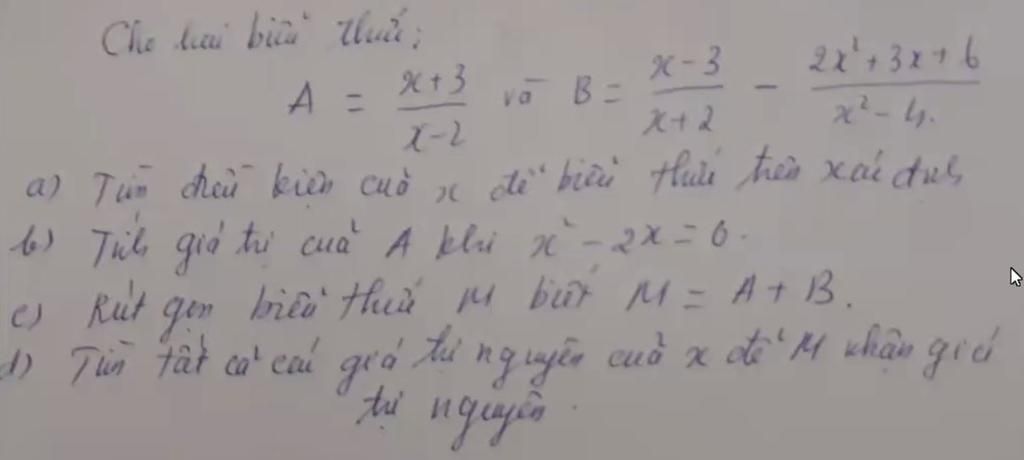 Cho hai biểu thức:
A = \frac{x+3}{x-2} và B = \frac{x-3}{x+2} - \frac{2x²+3x+6}{x²-4}.
a) Tìm điều kiện của x để biểu thức trên xác định
b) Tính giá trị của A khi x² - 2x = 0.
c) Rút gọn biểu thức M biết M = A + B.
d) Tìm tất cả các giá trị nguyên của x để M nhận giá
trị nguyên.